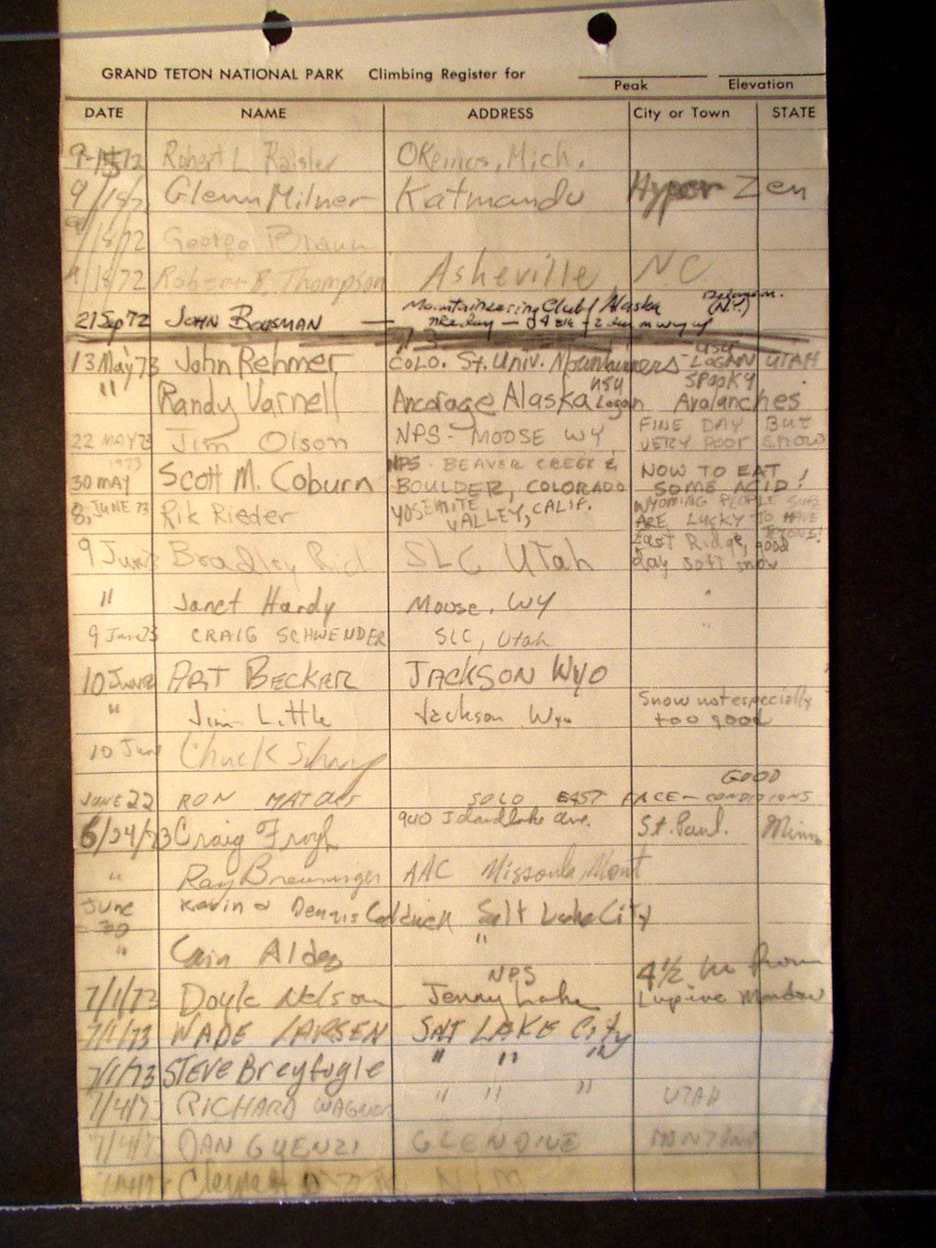 GRAND TETON NATIONAL PARK Climbing Register for
Peak Elevation
DATE NAME ADDRESS City or Town STATE
72 Robert L. Raisler Okemos, Mich.
9/18/7 Glenn Milner Katmandu Hyper Zen
9/18/72 George Braun
9/18/72 Robert B. Thompson Asheville NC
21 Sep 72 JOHN BOUSMAN — Mountaineering Club / Alaska (N.Y.)
13 May 73 John Rehmer COLO. St. Univ. Mountaineers - USU LOGAN UTAH
" Randy Varnell Ancorage Alaska USU Logan SPOOKY Avalanches
22 MAY 73 Jim Olson NPS - MOOSE WY FINE DAY BUT VERY POOR SNOW
1973
30 MAY Scott M. Coburn NPS - BEAVER CREEK & BOULDER, COLORADO NOW TO EAT SOME ACID!
8, JUNE 73 Rik Rieder YOSEMITE VALLEY, CALIF. WYOMING PEOPLE SURE ARE LUCKY TO HAVE TETONS!
9 June Bradley Rich SLC Utah East Ridge, good day soft snow
" Janet Hardy Moose, WY "
9 June 73 CRAIG SCHWENDER SLC, Utah "
10 June ART BECKER JACKSON WYO
" Jim Little Jackson Wyo Snow not especially too good
10 June Chuck
JUNE 22 RON SOLO EAST FACE - GOOD CONDITIONS
6/24/73 Craig 940 Idandlake Ave. St. Paul. Minn.
" Ray Breuninger AAC Missoula, Mont
June 30 Kevin & Dennis Caldwell Salt Lake City
" Cain Alder "
7/1/73 Doyle Nelson NPS Jenny Lake 4½ hr from Lupine Meadow
7/1/73 WADE LARSEN SALT LAKE City
7/1/73 STEVE Breyfogle " " "
7/4/7 RICHARD WAGNER " " " UTAH
7/4/7 DAN GUENZI GLENDIVE MONTANA